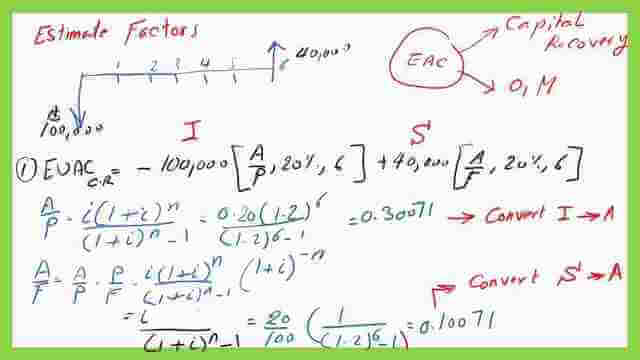 Estimate Factors
40,000
Capital
Recovery
EAC
O, M
1 2 3 4 5 6
$
100,000
I S
① EUAC C.R = - 100,000 [A/P, 20%, 6] + 40,000 [A/F, 20%, 6]
A/P = i(1+i)^n / (1+i)^n - 1 = 0.20(1.2)^6 / (1.2)^6 - 1 = 0.30071 → Convert I → A
A/F = A/P · P/F = i(1+i)^n / (1+i)^n - 1 (1+i)^-n
Convert S → A
= i / (1+i)^n - 1 = 20/100 (1 / (1.2)^6 - 1) = 0.10071